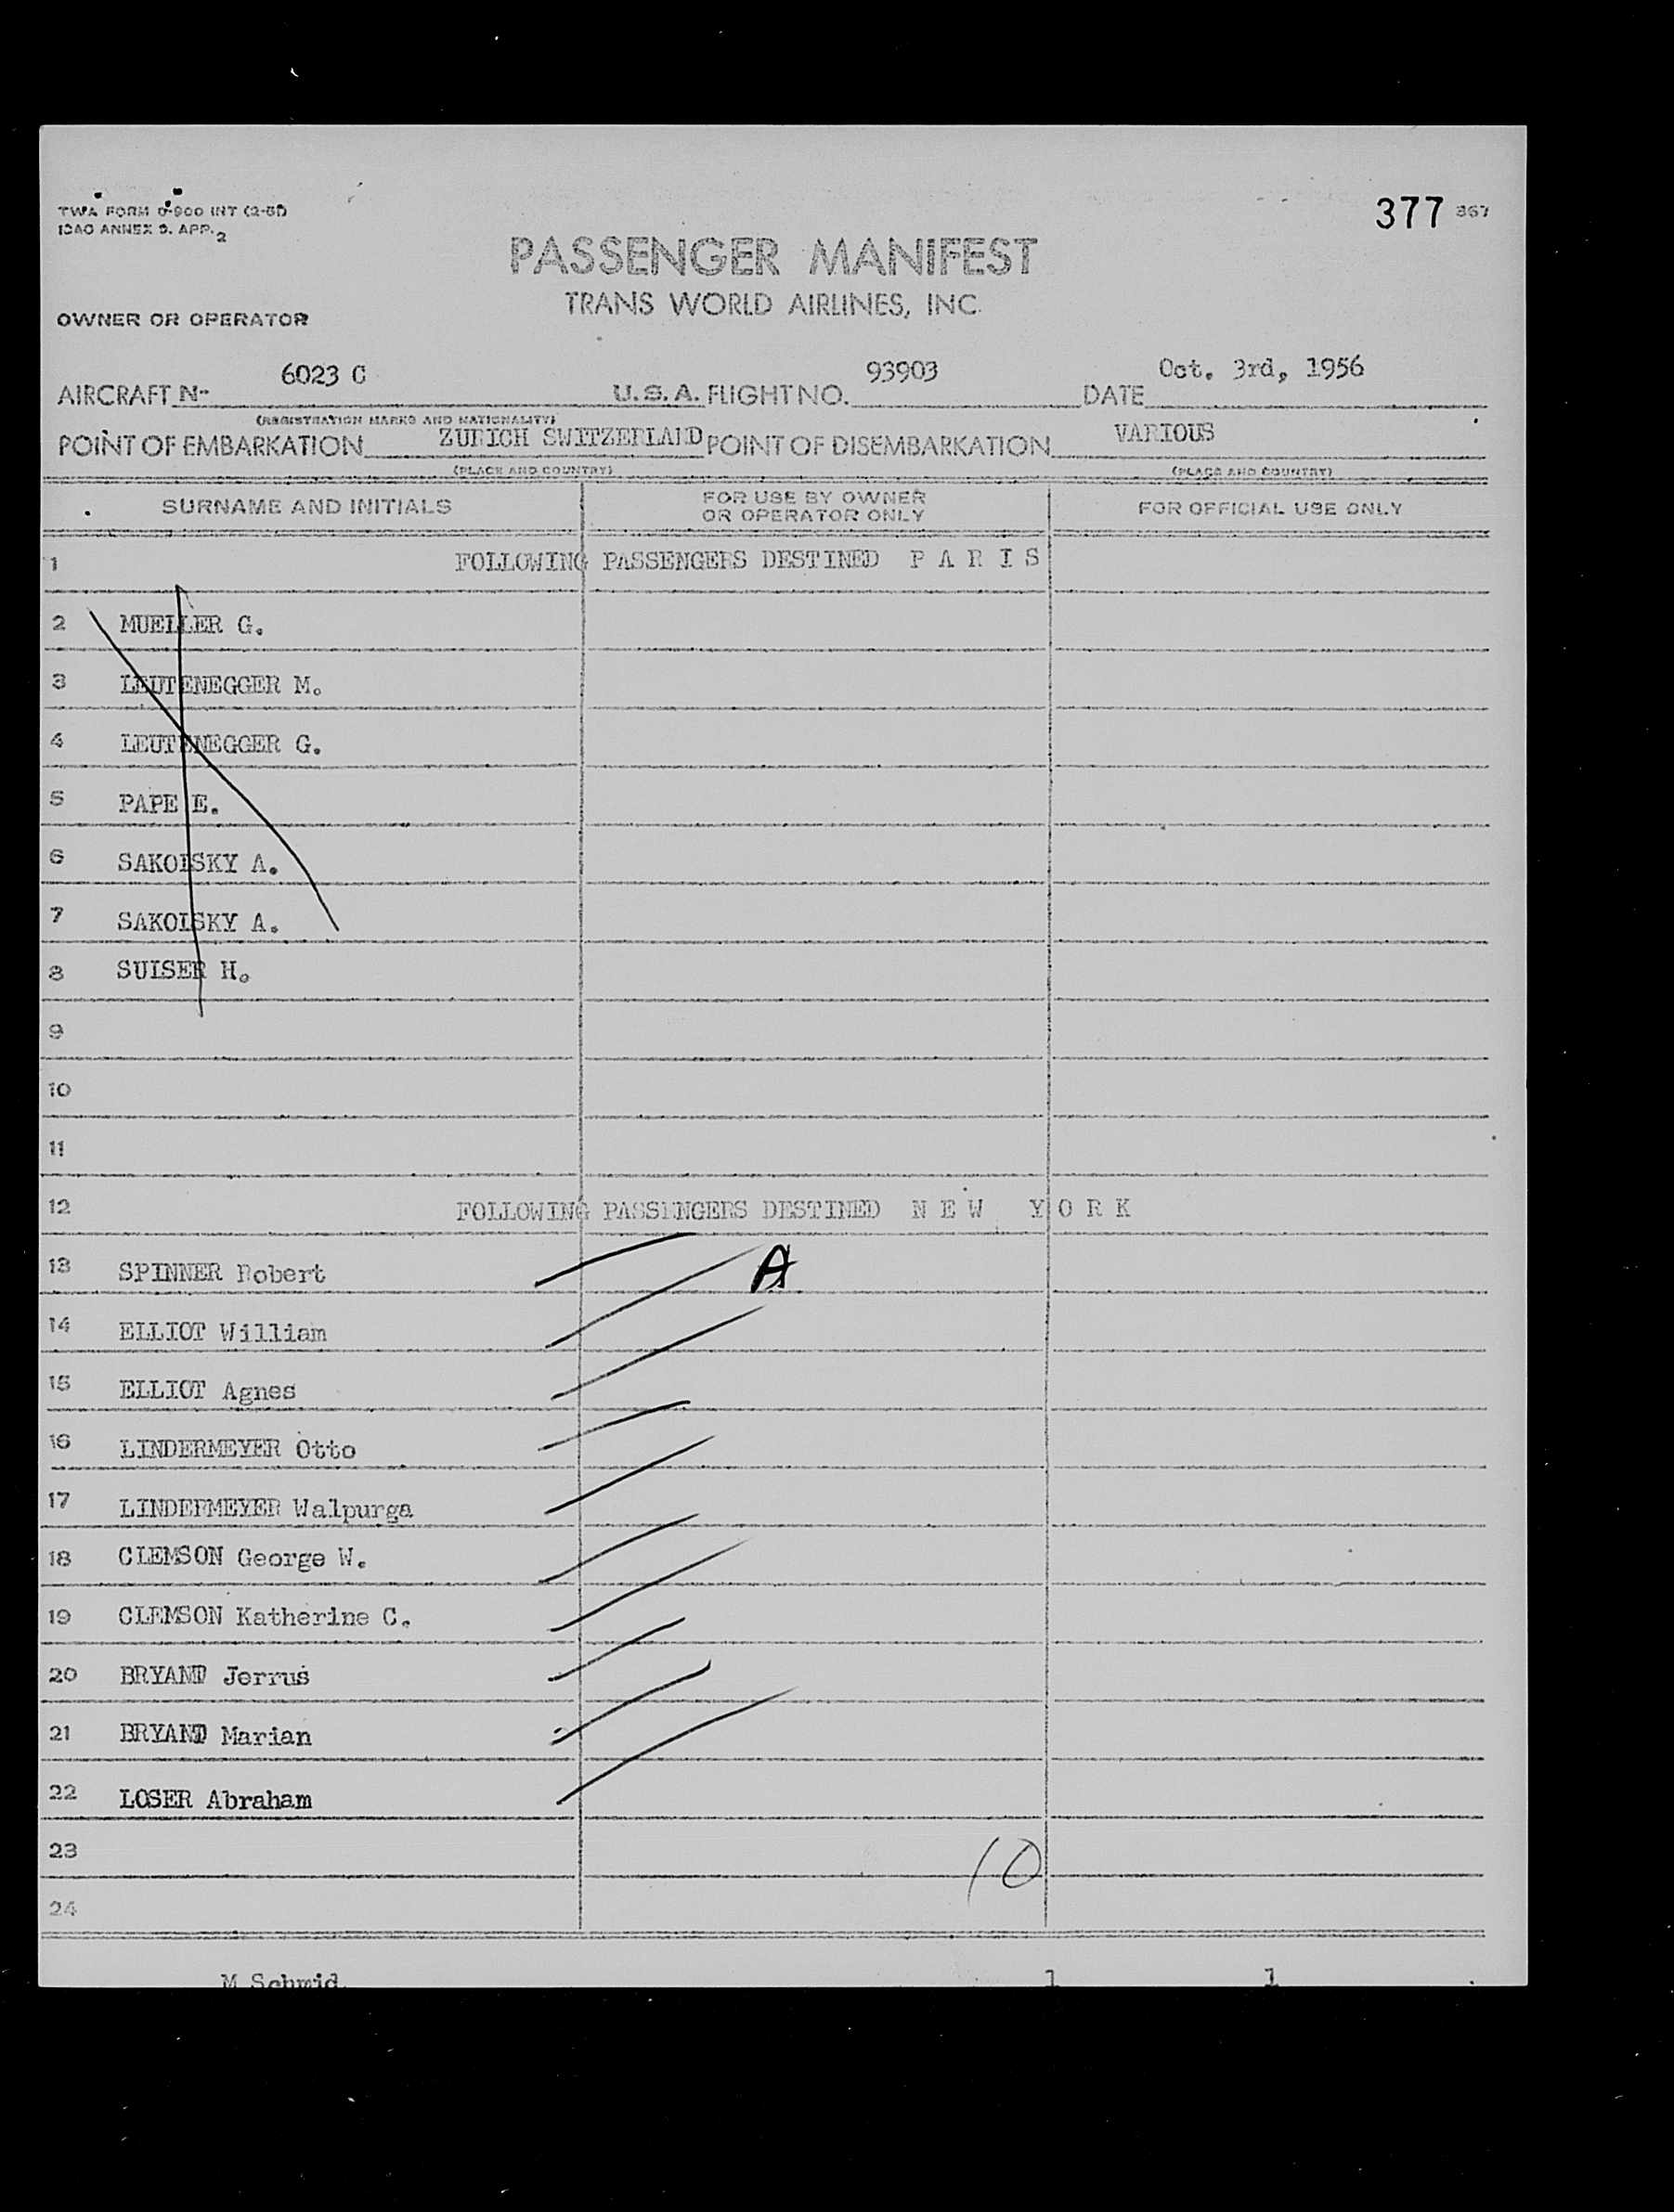 TWA FORM 0-900 INT (2-51)
ICAO ANNEX 9. APP. 2
377 367
PASSENGER MANIFEST
TRANS WORLD AIRLINES, INC.
OWNER OR OPERATOR
AIRCRAFT N- 6023 C U.S.A. FLIGHT NO. 93903 DATE Oct. 3rd, 1956
(REGISTRATION MARKS AND NATIONALITY)
POINT OF EMBARKATION ZURICH SWITZERLAND POINT OF DISEMBARKATION VARIOUS
(PLACE AND COUNTRY) (PLACE AND COUNTRY)
SURNAME AND INITIALS FOR USE BY OWNER OR OPERATOR ONLY FOR OFFICIAL USE ONLY
1 FOLLOWING PASSENGERS DESTINED P A R I S
2 MUELLER G.
3 LEUTENEGGER M.
4 LEUTENEGGER G.
5 PAPE E.
6 SAKOLSKY A.
7 SAKOLSKY A.
8 SUISER H.
9
10
11
12 FOLLOWING PASSENGERS DESTINED N E W Y O R K
13 SPINNER Robert A
14 ELLIOT William
15 ELLIOT Agnes
16 LINDERMEYER Otto
17 LINDERMEYER Walpurga
18 CLEMSON George W.
19 CLEMSON Katherine C.
20 BRYAND Jerrus
21 BRYAND Marian
22 LOSER Abraham
23 10
24
M Schmid 1 1